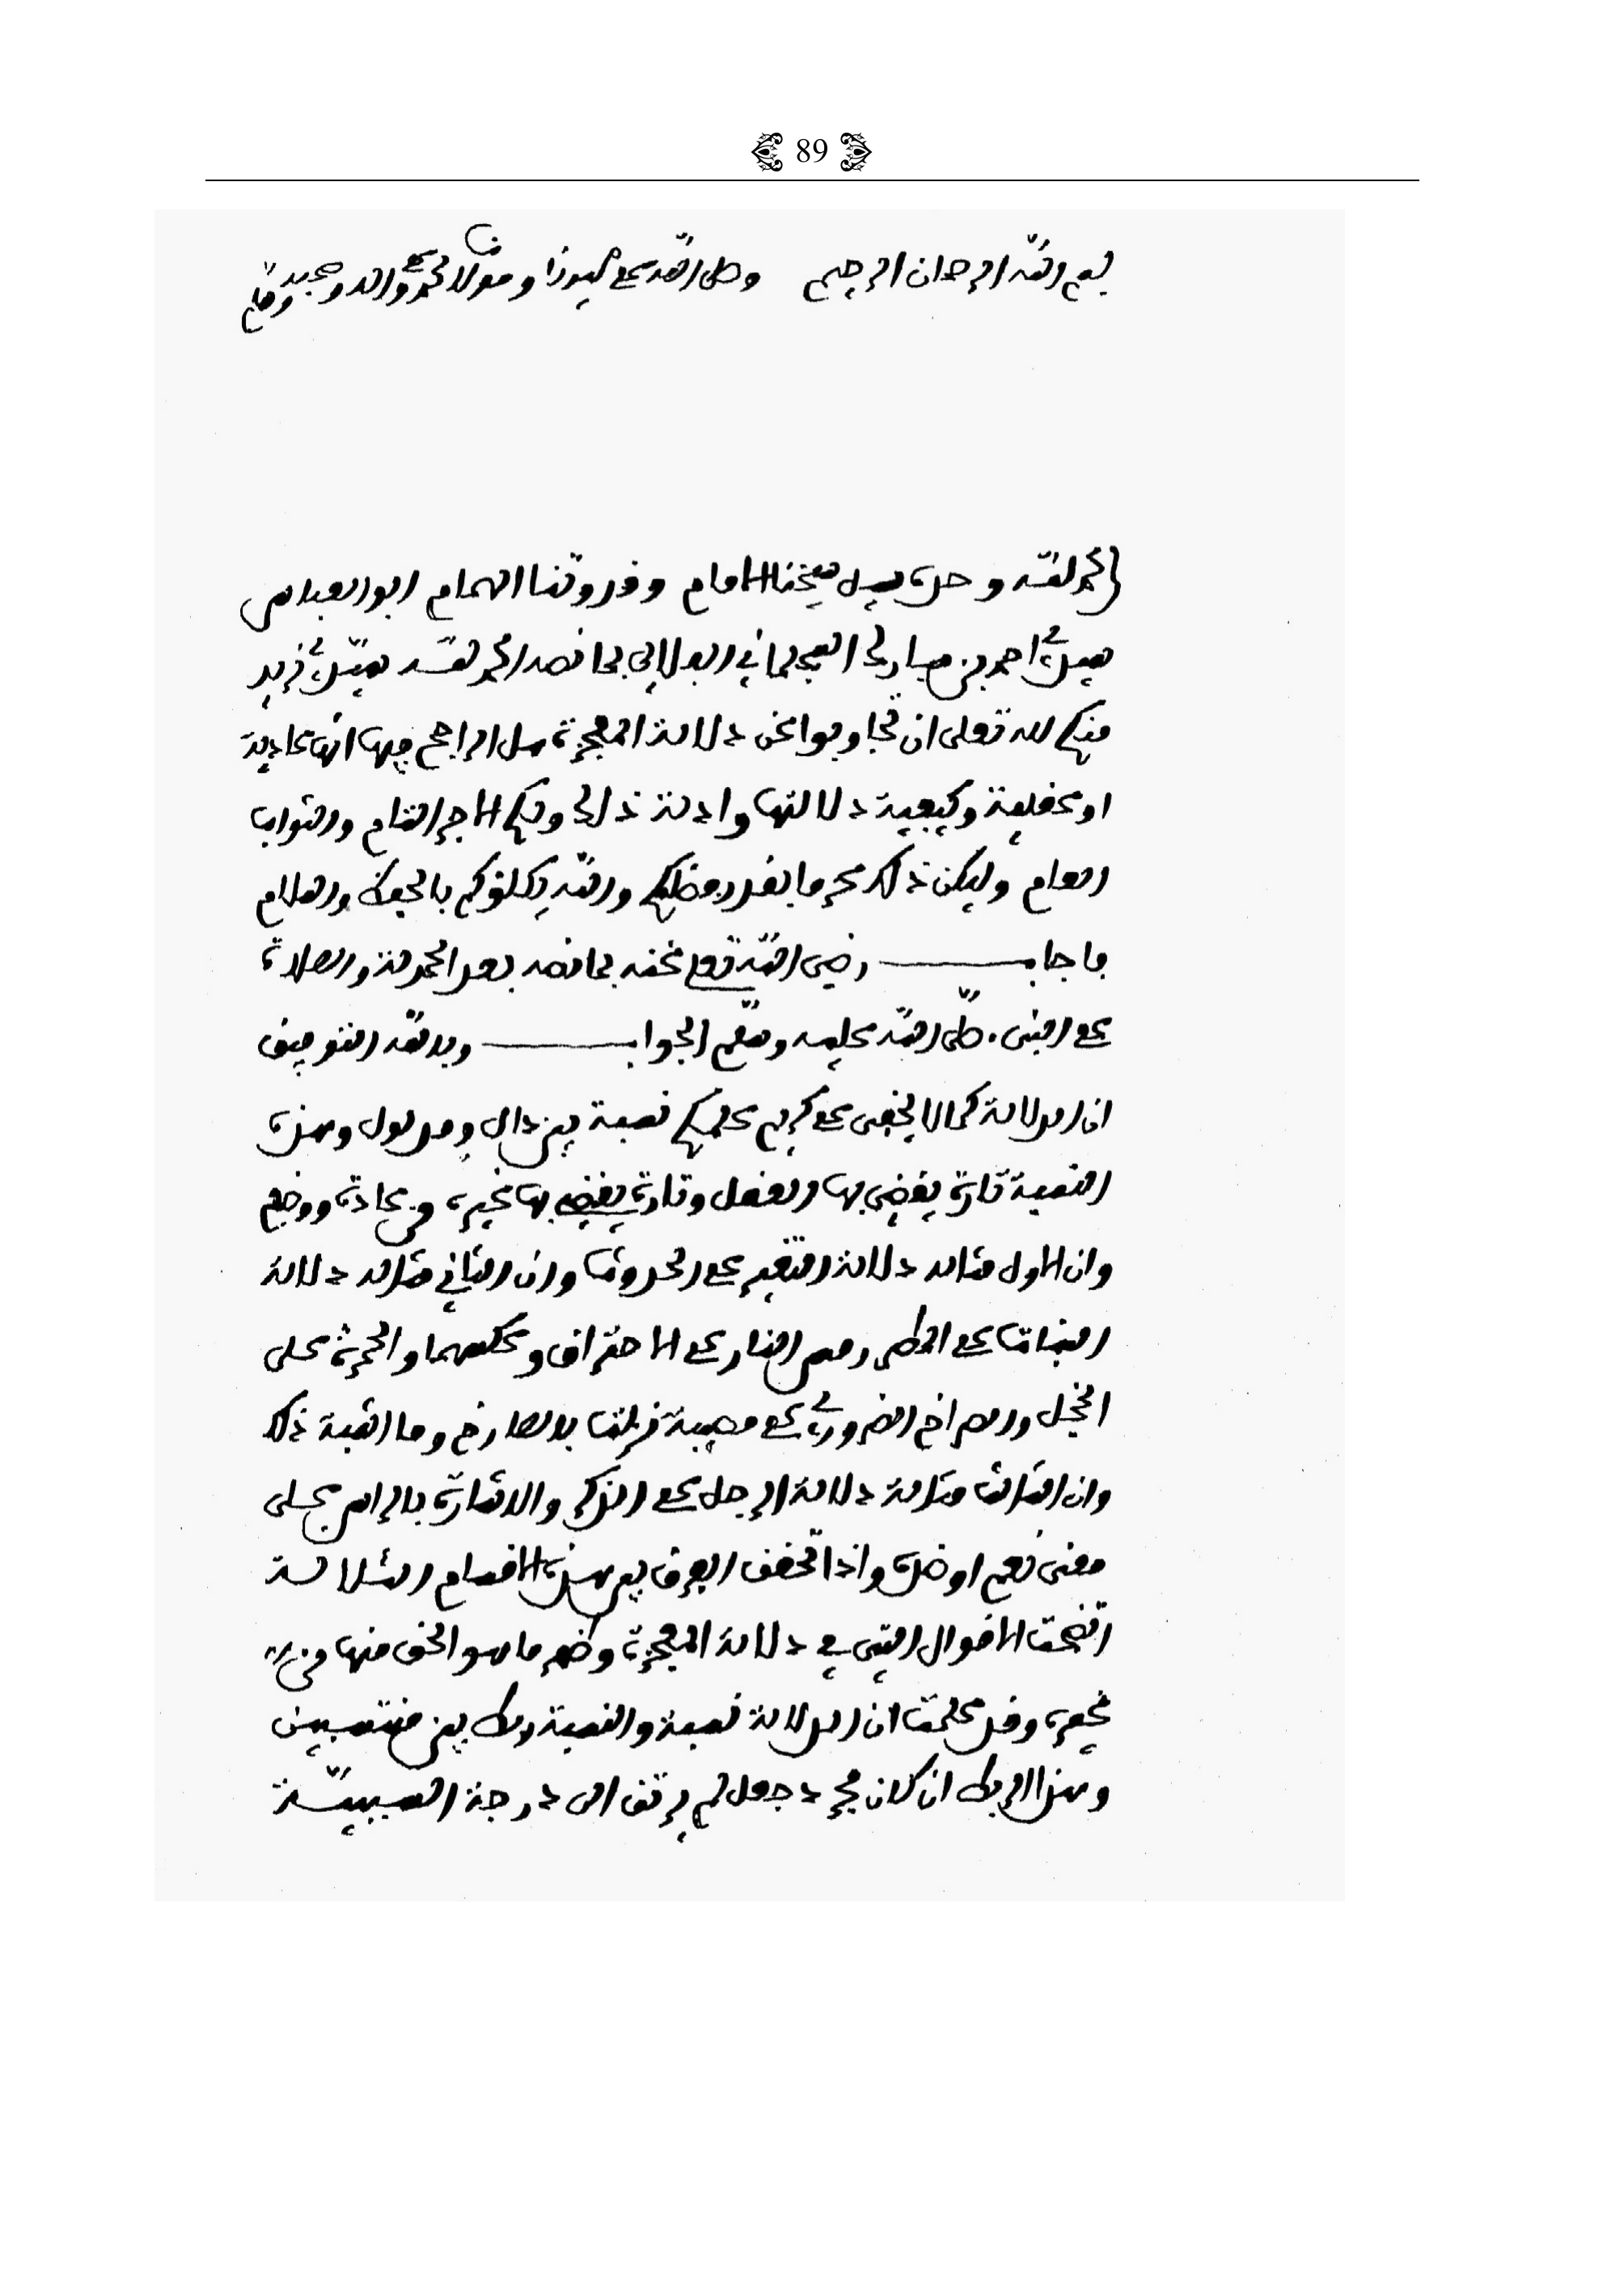 89
بسم الله الرحمان الرحيم وصلى الله على سيدنا ومولانا محمد وآله وصحبه وسلم
الحمد لله وحده سيل شيخنا الامام وقدوتنا الهمام ابو العباس
سيدي احمد بن مبارك السجلماسي اللمطي بما نصه الحمد لله سيدي نريد
منكم لله تعلى ان تجاوبوا عن دلالة المعجزة هل الراجح فيها انها عادية
او عقلية وكيفية دلالتها وادلة ذلك ولكم الاجر التام والثواب
العام وليكن ذلك محررا بقدر وضلكم والله يكلؤكم بالحفظ والسلام
فاجاب رضي الله تعلى عنه بما نصه بعد الحمدلة والصلاة
على النبي صلى الله عليه وسلم الجواب وبالله التوفيق
ان الدلالة كما لا يخفى على كريم علمكم نسبة بين دال ومدلول وهذه
النسبة تارة يقضي بها العقل وتارة يقضي بها غيره من عادة ووضع
وان الاول مثاله دلالة التغير على الحدوث وان الثاني مثاله دلالة
النبات على المطر ومس النار على الاحتراق وعكسهما والحمرة على
الخجل والصراخ الضروري على مصيبة نزلت بالصارخ وما اشبه ذلك
وان الثالث مثاله دلالة الرجل على الذكر والاشارة بالراس على
معنى نعم او ضده واذا تحقق الفرق بين هذه الاقسام الثلاثة
اتضحت الاقوال التي في دلالة المعجزة وظهر ما هو الحق منها من
غيره وقد علمت ان الدلالة نسبة والنسبة ربط بين منتسبين
وهذا الربط ان كان مجرد جعل لم يرتق الى درجة السببية